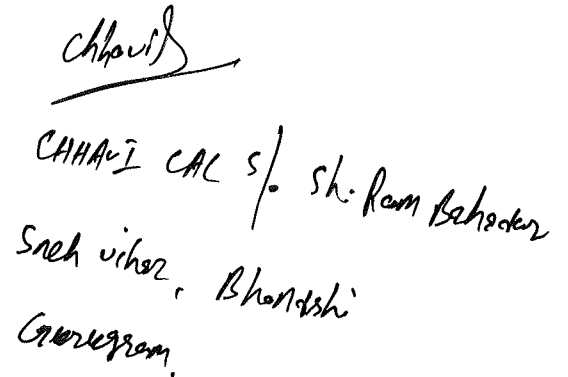 Chhavil
CHHAVI LAL S/. Sh. Ram Bahadur
Sneh vihar, Bhondshi
Gurugram.